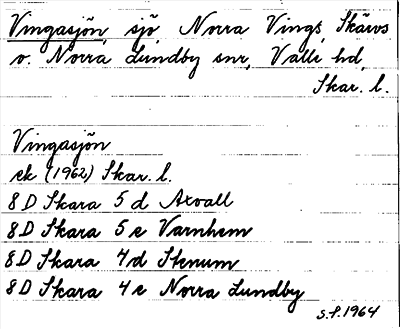 Vingasjön, sjö, Norra Vings, Skärvs
o. Norra Lundby snr, Valle hd,
Skar. l.
Vingasjön
ek (1962) Skar. l.
8 D Skara 5 d Axvall
8 D Skara 5 e Varnhem
8 D Skara 4 d Stenum
8 D Skara 4 e Norra Lundby
S.F. 1964